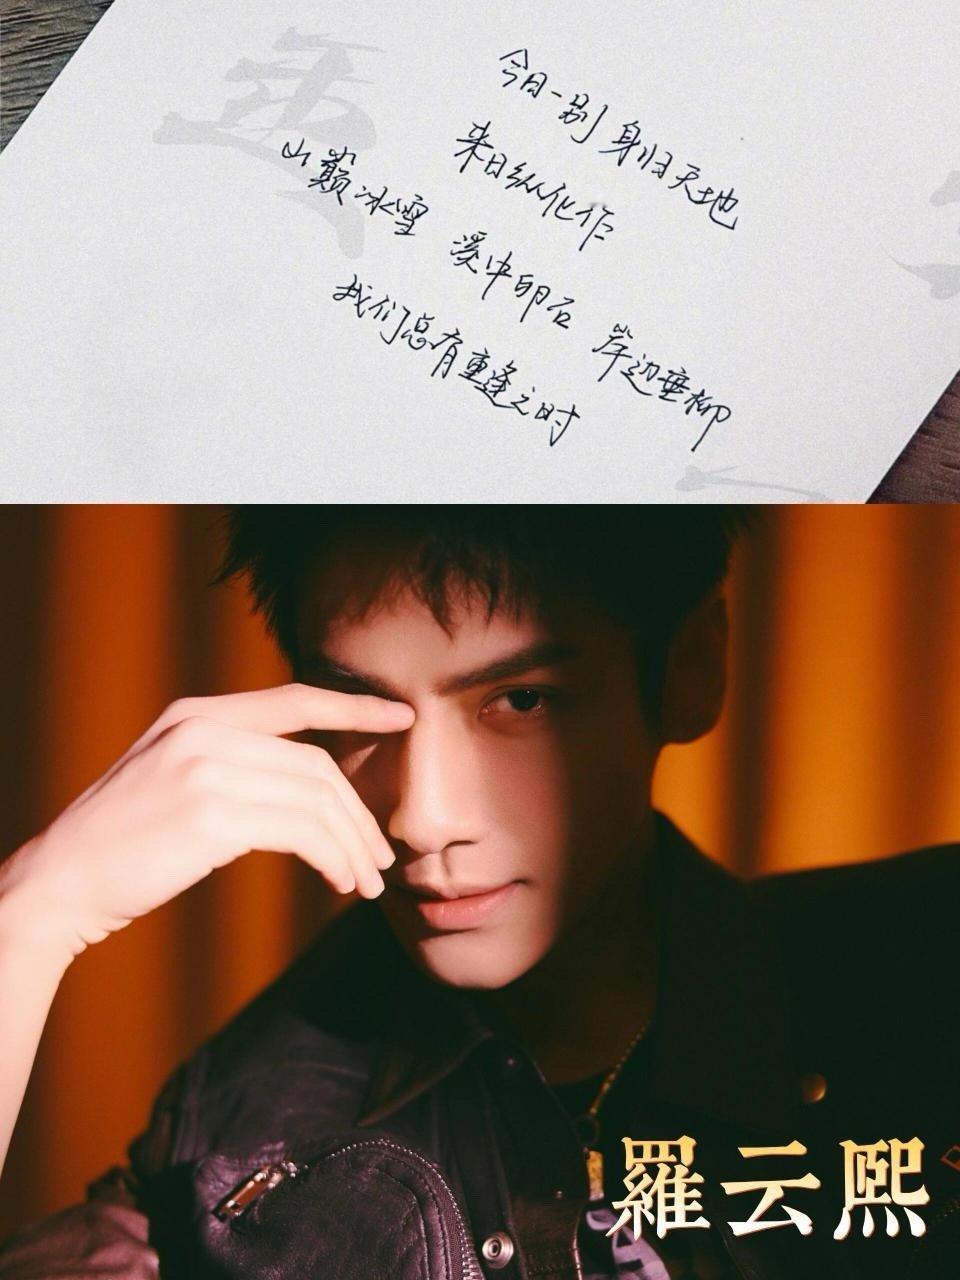 今日一别 身归天地
来日纵化作
山巅冰雪 溪中卵石 岸边垂柳
我们总有重逢之时
羅云熙